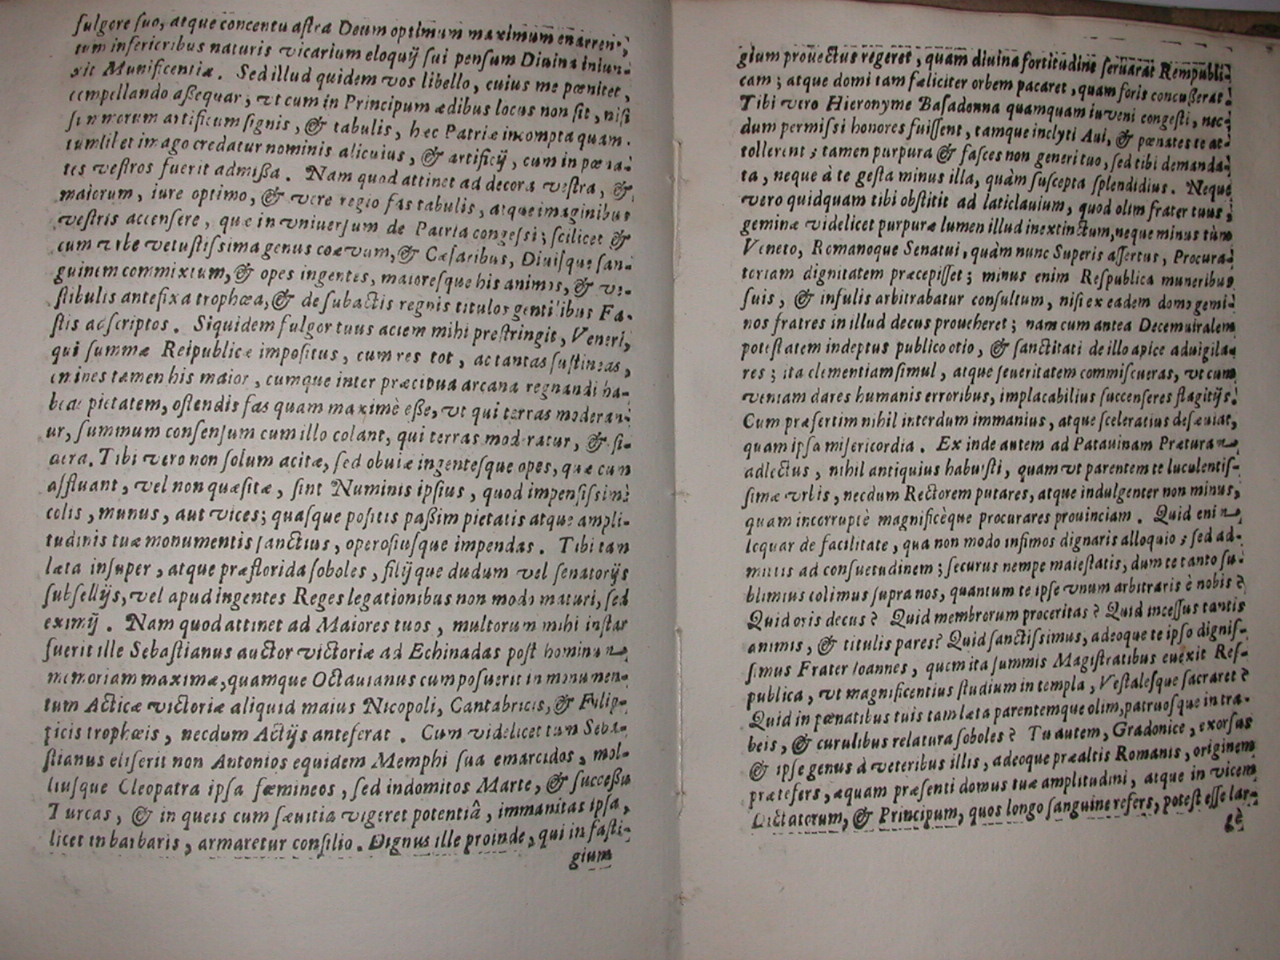 fulgore ſuo, atque concentu aſtra Deum optimum maximum enarrent,
tum inferioribus naturis vicarium eloquij ſui penſum Diuina iniun-
xit Munificentiæ. Sed illud quidem vos libello, cuius me pœnitet,
compellando aßequar; vt cum in Principum ædibus locus non ſit, niſi
ſummorum artificum ſignis, & tabulis, hec Patriæ incompta quam-
tumlilet imago credatur nominis alicuius, & artificij, cum in pœna-
tes veſtros fuerit admißa. Nam quod attinet ad decora veſtra, &
maiorum, iure optimo, & vere regio fas tabulis, atque imaginibus
veſtris accenſere, quæ in vniuerſum de Patria congeſsi; ſcilicet &
cum vrbe vetuſtiſsima genus coævum, & Cæſaribus, Diuiſque ſan-
guinem commixtum, & opes ingentes, maioreſque his animis, & ve-
ſtibulis antefixa trophœa, & de ſubactis regnis titulos gentilibus Fa-
ſtis adſcriptos. Siquidem fulgor tuus aciem mihi preſtringit, Veneri,
qui ſummæ Reipublicæ impoſitus, cum res tot, ac tantas ſuſtineas,
omnes tamen his maior, cumque inter præcipua arcana regnandi ha-
beas pietatem, oſtendis fas quam maximè eße, vt qui terras moderan-
ur, ſummum conſenſum cum illo colant, qui terras moderatur, & ſi-
dera. Tibi vero non ſolum acitæ, ſed obuiæ ingenteſque opes, quæ cum
affluant, vel non quæſitæ, ſint Numinis ipſius, quod impenſiſſimè
colis, munus, aut vices; quaſque poſitis paßim pietatis atque ampli-
tudinis tuæ monumentis ſanctius, operoſiuſque impendas. Tibi tam
læta inſuper, atque præflorida ſoboles, filijque dudum vel ſenatorijs
ſubſellijs, vel apud ingentes Reges legationibus non modo maturi, ſed
eximij. Nam quod attinet ad Maiores tuos, multorum mihi inſtar
fuerit ille Sebaſtianus auctor victoriæ ad Echinadas poſt hominum
memoriam maximæ, quamque Octauianus cum poſuerit in monumen-
tum Acticæ victoriæ aliquid maius Nicopoli, Cantabricis, & Filip-
picis trophœis, necdum Actijs anteferat. Cum videlicet tum Seba-
ſtianus eliſerit non Antonios equidem Memphi ſua emarcidos, mol-
liuſque Cleopatra ipſa fœmineos, ſed indomitos Marte, & ſucceßu
Turcas, & in queis cum ſæuitia vigeret potentiâ, immanitas ipſa,
licet in barbaris, armaretur conſilio. Dignus ille proinde, qui in faſti-
gium
gium prouectus regeret, quam diuina fortitudine ſeruarat Rempubli-
cam; atque domi tam fæliciter orbem pacaret, quam foris concußerat.
Tibi vero Hieronyme Baſadonna quamquam inveni congeſti, nec-
dum permiſsi honores fuiſſent, tamque inclyti Aui, & pœnates te at-
tollerent; tamen purpura & faſces non generi tuo, ſed tibi demanda-
ta, neque à te geſta minus illa, quàm ſuſcepta ſplendidius. Neque
vero quidquam tibi obſtitit ad laticlauium, quod olim frater tuus,
geminæ videlicet purpuræ lumen illud inextinctum, neque minus tũm
Veneto, Romanoque Senatui, quàm nunc Superis aſſertus, Procura-
toriam dignitatem præcepiſſet; minus enim Reſpublica muneribus
ſuis, & inſulis arbitrabatur conſultum, niſi ex eadem domo gemi-
nos fratres in illud decus proueheret; nam cum antea Decemuiralem
poteſtatem indeptus publico otio, & ſanctitati de illo apice aduigila-
res; ita clementiam ſimul, atque ſeueritatem commiſcueras, vt cum
veniam dares humanis erroribus, implacabilius ſuccenſeres flagitijs.
Cum præſertim nihil interdum immanius, atque ſceleratius deſæuiat,
quam ipſa miſericordia. Ex inde autem ad Patauinam Præturam
adlectus, nihil antiquius habuiſti, quam vt parentem te luculentiſ-
ſimæ vrbis, necdum Rectorem putares, atque indulgenter non minus,
quam incorruptè magnificèque procurares prouinciam. Quid enim
loquar de facilitate, qua non modo infimos dignaris alloquio; ſed ad-
mittis ad conſuetudinem; ſecurus nempe maieſtatis, dum te tanto ſu-
blimius colimus ſupra nos, quantum te ipſe vnum arbitraris è nobis?
Quid oris decus? Quid membrorum proceritas? Quid inceſſus tantis
animis, & titulis pares? Quid ſanctiſsimus, adeoque te ipſo digniſ-
ſimus Frater Ioannes, quem ita ſummis Magiſtratibus euexit Reſ-
publica, vt magnificentius ſtudium in templa, Veſtaleſque ſacraret?
Quid in pœnatibus tuis tam læta parentemque olim, patruoſque in tra-
beis, & curulibus relatura ſoboles? Tu autem, Gradonice, exorſus
& ipſe genus à veteribus illis, adeoque præaltis Romanis, originem
prætefers, æquam præſenti domus tuæ amplitudini, atque in vicem
Dictatorum, & Principum, quos longo ſanguine refers, poteſt eſſe lar-
gè